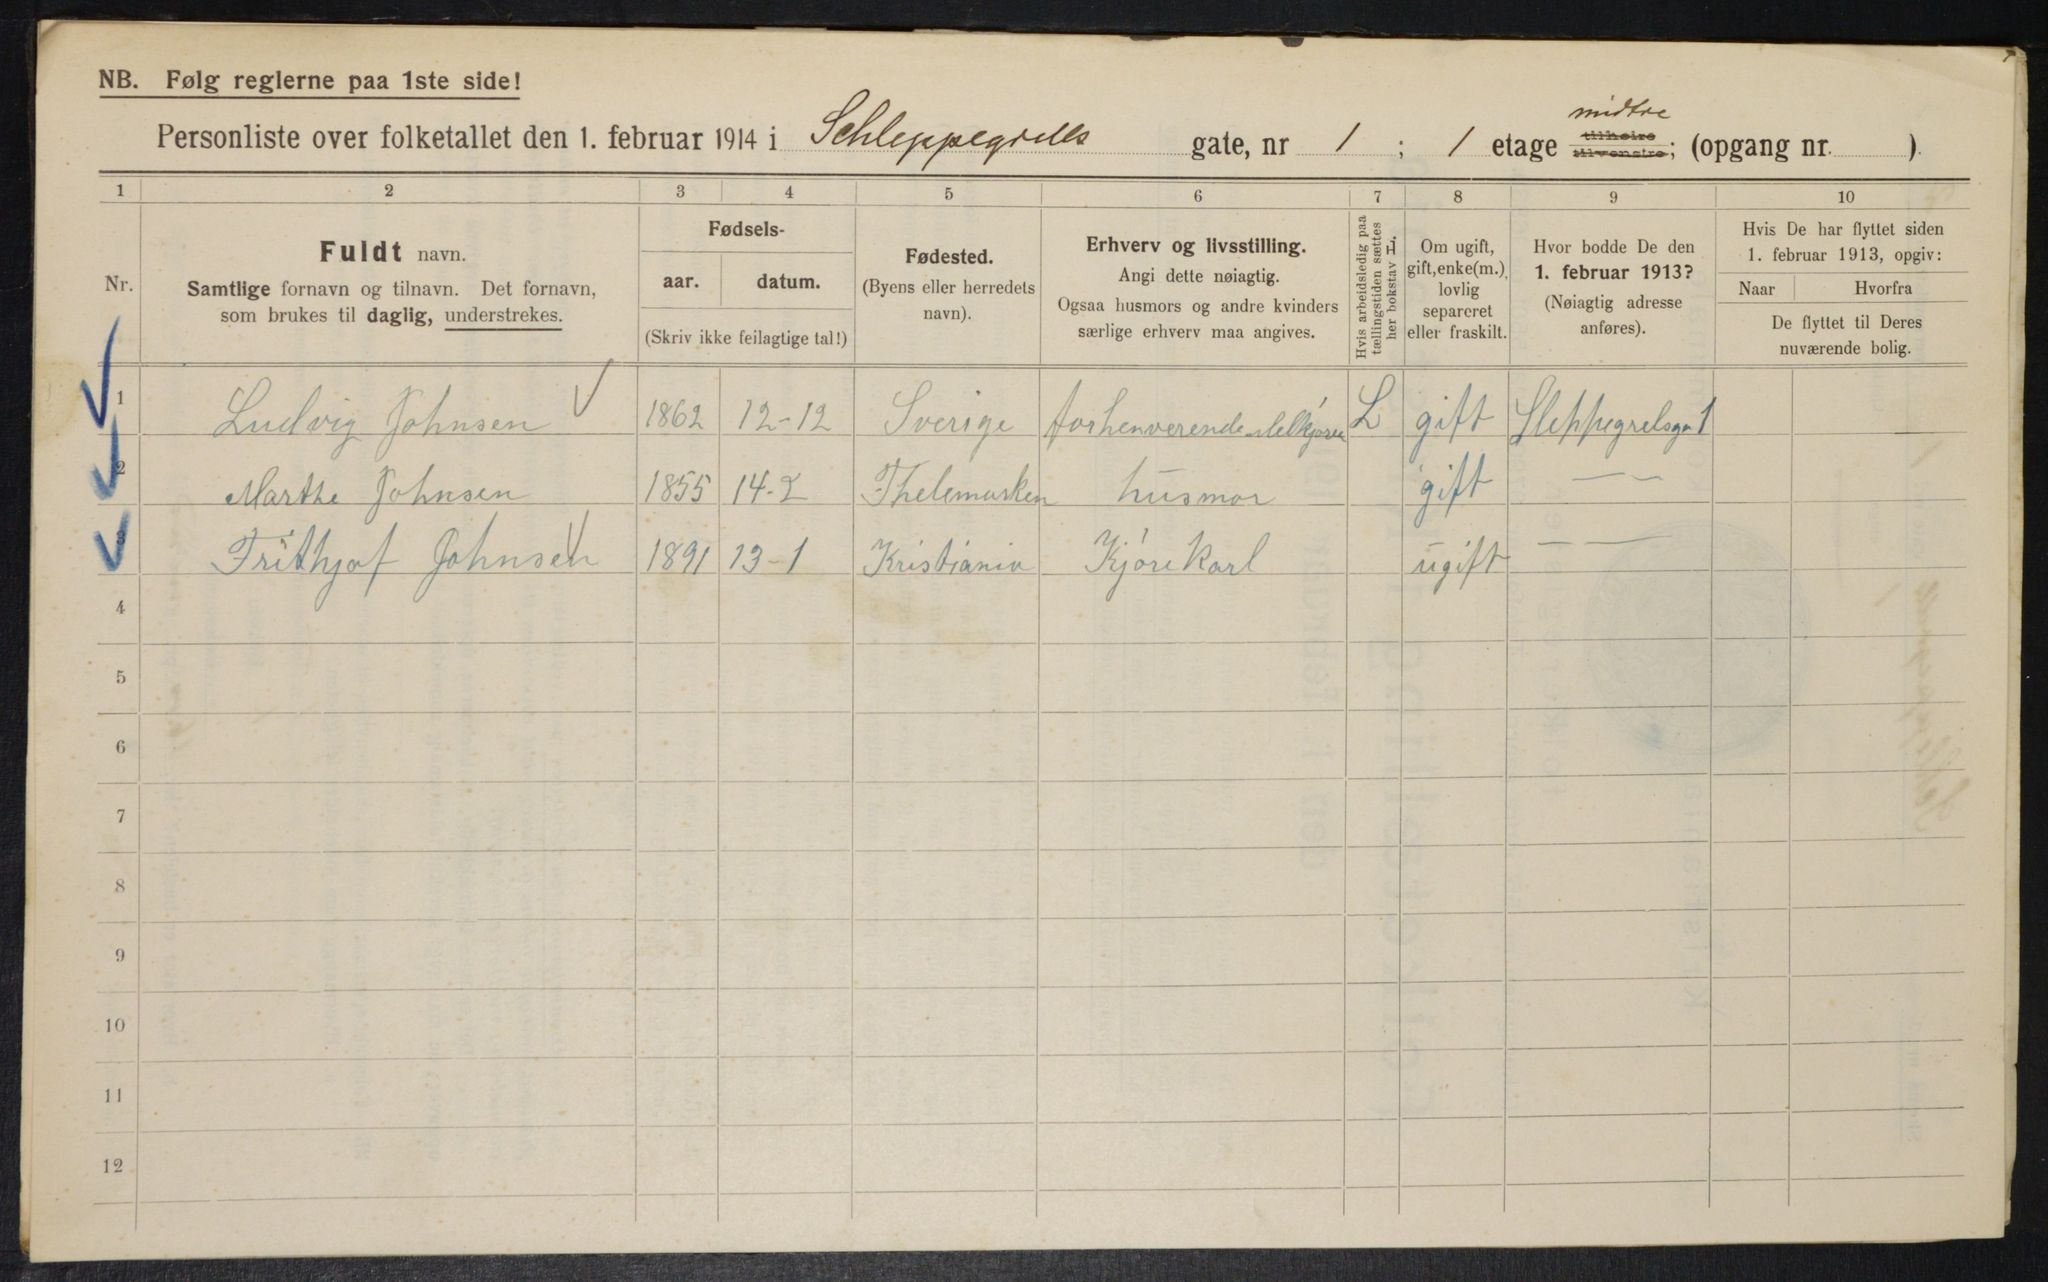 NB. Følg reglerne paa 1ste side!
Personliste over folketallet den 1. februar 1914 i Schleppegrells gate, nr 1 ; 1 etage midtre tilhøire tilvenstre; (opgang nr. ).
1 2 3 4 5 6 7 8 9 10
Nr.
Fuldt navn.
Samtlige fornavn og tilnavn. Det fornavn,
som brukes til daglig, understrekes.
Fødsels-
aar. datum.
(Skriv ikke feilagtige tal!)
Fødested.
(Byens eller herredets
navn).
Erhverv og livsstilling.
Angi dette nøiagtig.
Ogsaa husmors og andre kvinders
særlige erhverv maa angives.
Hvis arbeidsledig paa
tællingstiden sættes
her bokstav L.
Om ugift,
gift, enke(m.),
lovlig
separeret
eller fraskilt.
Hvor bodde De den
1. februar 1913?
(Nøiagtig adresse
anføres).
Hvis De har flyttet siden
1. februar 1913, opgiv:
Naar Hvorfra
De flyttet til Deres
nuværende bolig.
1 Ludvig Johnsen 1862 12-12 Sverige forhenverende L gift Sleppegrelsga 1
2 Marthe Johnsen 1855 14-2 Thelemarken husmor gift — —
3 Frithjof Johnsen 1891 13-1 Kristiania Kjørekarl ugift — —
4
5
6
7
8
9
10
11
12